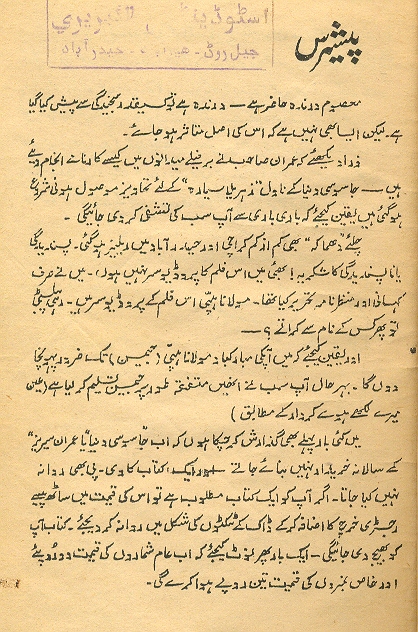 اسٹوڈینٹس لائبریری
جیل روڈ۔ حیدرآباد
پیشرس
معصوم درندہ حاضر ہے — درندہ ہے تو کسیقدر سنجیدگی سے پیش کیا گیا
ہے لیکن ایسا بھی نہیں ہے کہ اس کی اصل متاثر ہو جائے۔
ذرا دیکھئے کہ عمران صاحب نے برفیلے میدانوں میں کیسے کارنامے انجام دیئے
ہیں — جاسوسی دنیا کے ناول "زہریلا سیارہ" کے لئے تجاویز موصول ہونی شروع
ہو گئی ہیں یقین کیجئے کہ باری باری سے آپ سب کی تشفی کر دی جائیگی۔
چلئے "دھماکہ" بھی کم از کم کراچی اور حیدر آباد میں ریلیز ہو گئی۔ پسندیدگی
یا ناپسندیدگی کا شکریہ! بھئی میں اس فلم کا پروڈیوسر نہیں ہوں۔ میں نے صرف
کہانی اور منظر نامہ تحریر کیا تھا۔ مولانا ہپّی اس فلم کے پروڈیوسر ہیں۔
تو پھر کس کے نام سے کراتے؟ —
اور یقین کیجئے کہ میں آپکی مبارکباد مولانا ہپّی (جیمسن) تک ضرور پہونچا
دوں گا۔ بہرحال آپ سب نے انھیں متفقہ طور پر جیمسن تسلیم کر لیا ہے (عین
میرے لکھے ہوئے کردار کے مطابق)
میں کئی بار پہلے بھی گذارش کر چکا ہوں کہ اب جاسوسی دنیا یا عمران سیریز"
کے سالانہ خریدار نہیں بنائے جاتے اور ایک کتاب کا وی۔ پی بھی روانہ
نہیں کیا جاتا۔ اگر آپ کو ایک کتاب مطلوب ہے تو اس کی قیمت میں ساٹھ پیسے
رجسٹری خرچ کا اضافہ کر کے ڈاک کے ٹکٹوں کی شکل میں روانہ کر دیجئے۔ کتاب آپ
کو بھیج دی جائیگی۔ ایک بار پھر نوٹ کیجئے کہ اب عام شماروں کی قیمت دو روپئے
اور خاص نمبروں کی قیمت تین روپے ہوا کرے گی۔